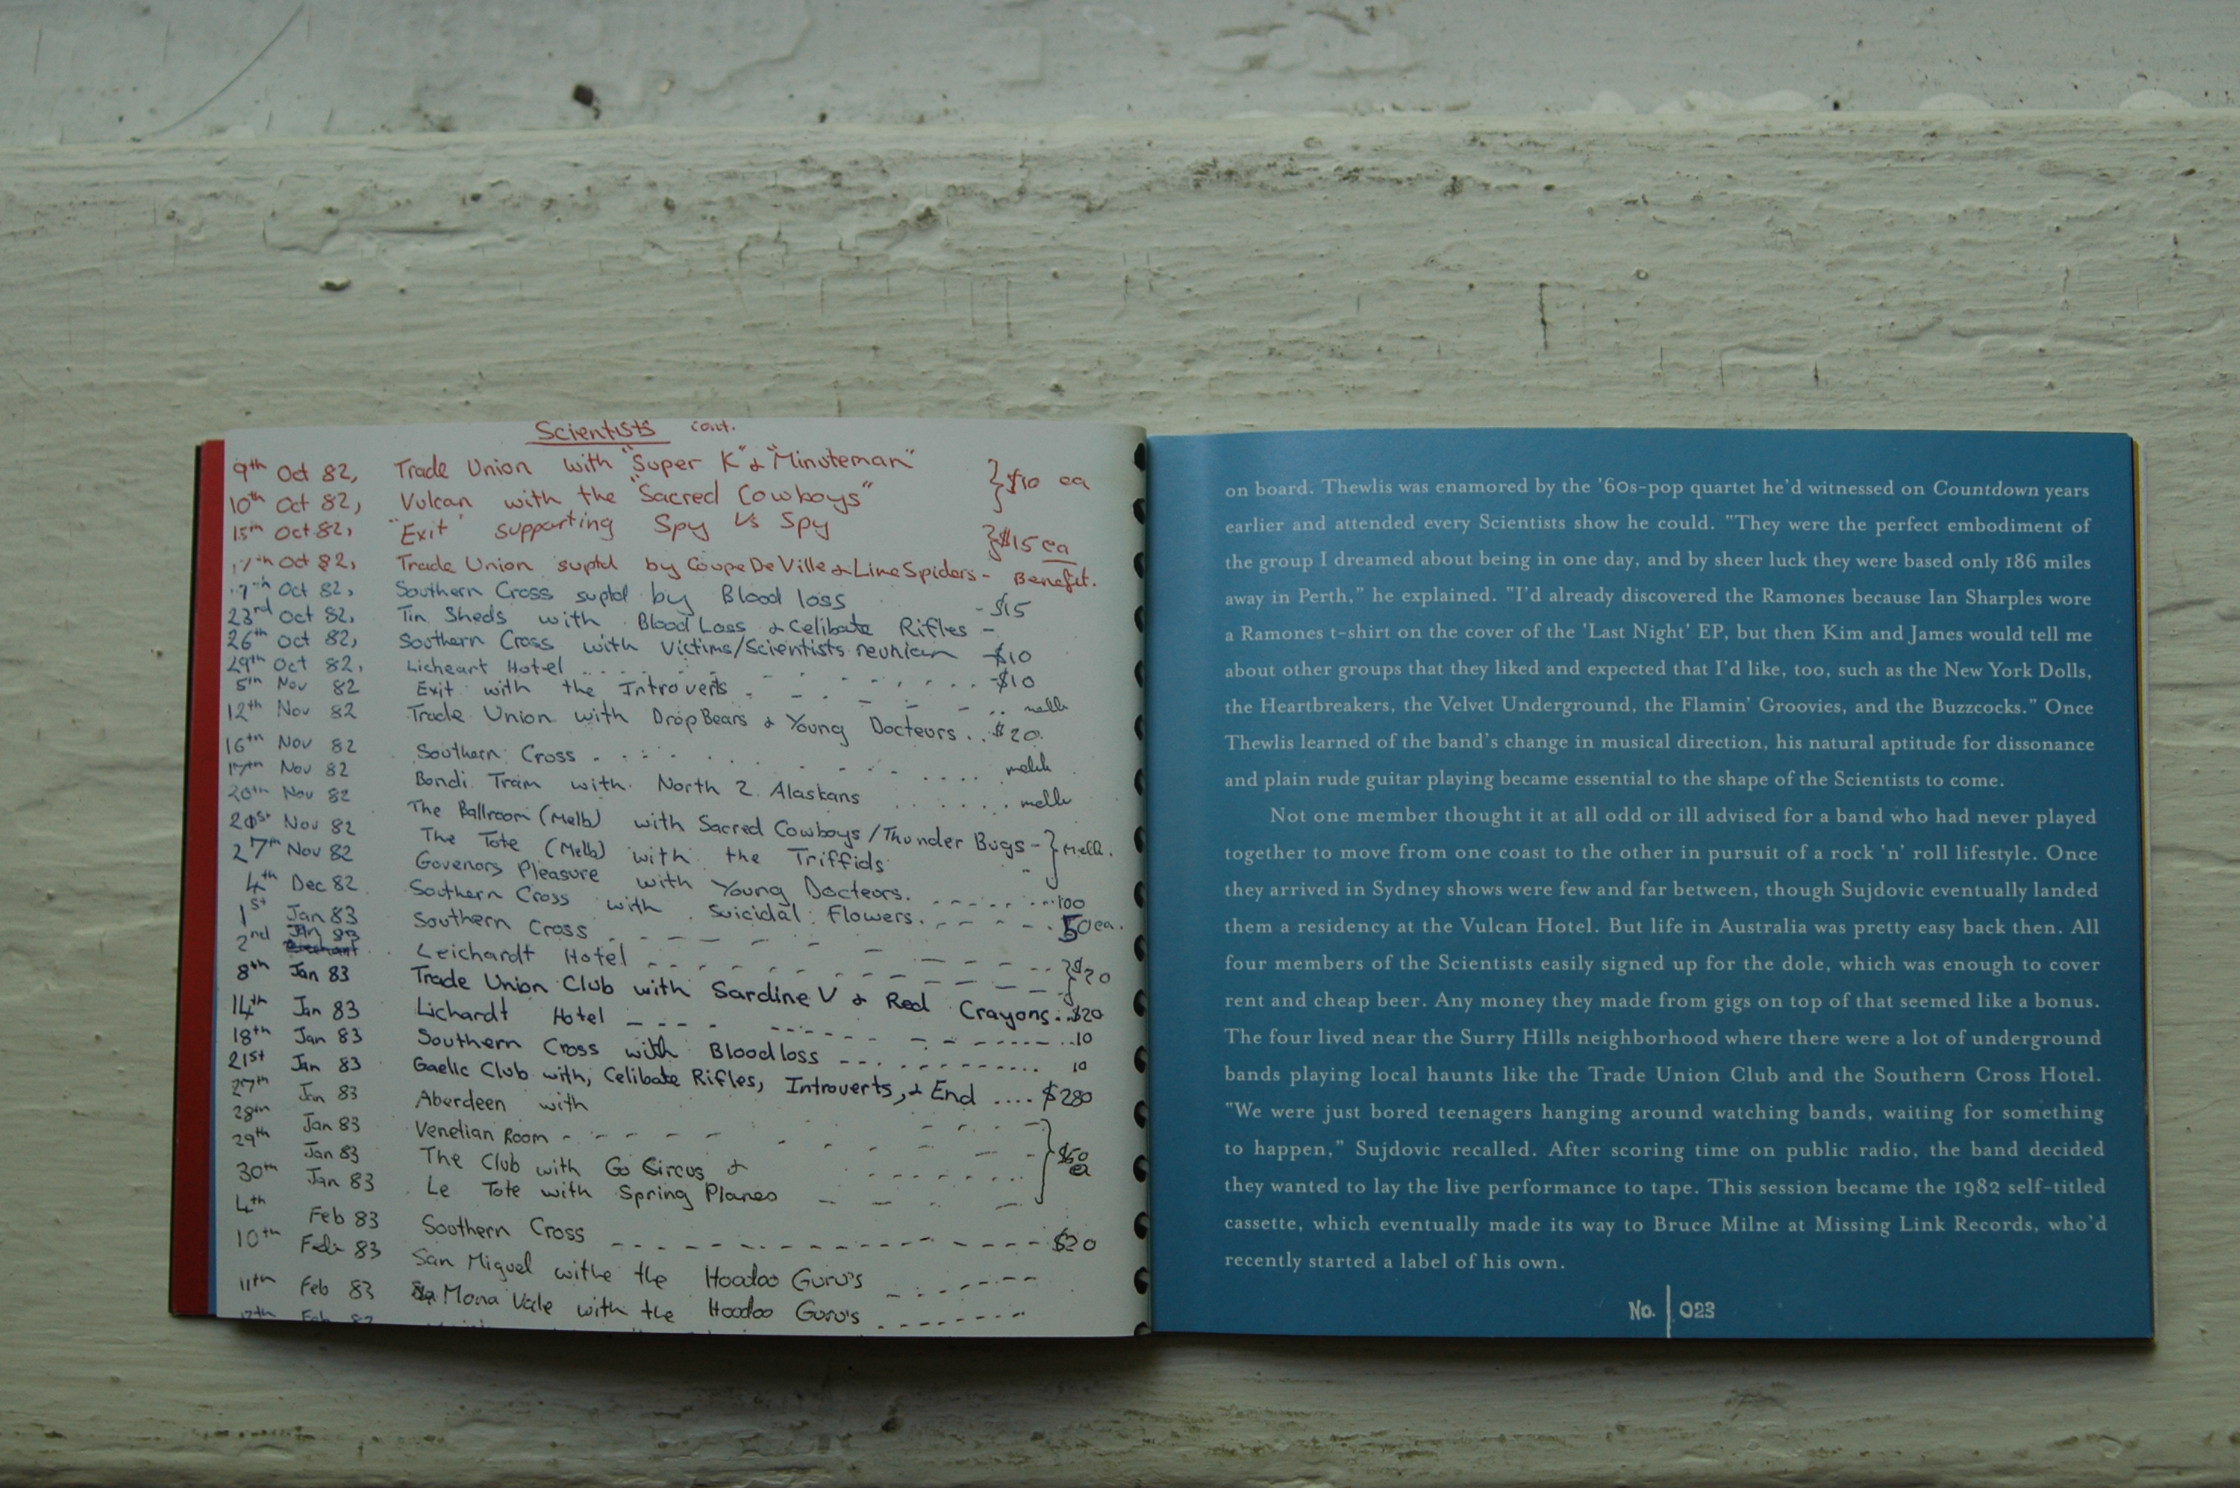 Scientists cont.
9th Oct 82, Trade Union with "Super K" & "Minuteman"
10th Oct 82, Vulcan with the "Sacred Cowboys" } $10 ea
15th Oct 82, "Exit" supporting Spy Vs Spy
17th Oct 82, Trade Union suptd by Coupe De Ville & Lime Spiders - Benefit. } $15 ea
Oct 82, Southern Cross suptd by Blood loss - $15
23rd Oct 82, Tin Sheds with Blood Loss & Celibate Rifles -
26th Oct 82, Southern Cross with Victims/Scientists reunion - $10
29th Oct 82, Licheart Hotel - $10
5th Nov 82 Exit with the Introverts
12th Nov 82 Trade Union with Drop Bears & Young Docteurs .. $20.
16th Nov 82 Southern Cross
17th Nov 82 Bondi Tram with North 2 Alaskans
20th Nov 82 The Ballroom (Melb) with Sacred Cowboys/Thunder Bugs -
21st Nov 82 The Tote (Melb) with the Triffids
27th Nov 82 Govenors Pleasure with Young Docteurs.
4th Dec 82 Southern Cross with Suicidal Flowers. 100
1st Jan 83 Southern Cross 50 ea.
2nd Jan 83 Leichardt Hotel
8th Jan 83 Trade Union Club with Sardine V & Red Crayons. $20
14th Jan 83 Lichardt Hotel $20
18th Jan 83 Southern Cross with Bloodloss 10
21st Jan 83 Gaelic Club with, Celibate Rifles, Introverts, & End .... $280
27th Jan 83 Aberdeen with
28th Jan 83 Venetian Room
29th Jan 83 The Club with Go Circus & } $50 ea
30th Jan 83 Le Tote with Spring Planes
4th Feb 83 Southern Cross $20
10th Feb 83 San Miguel withe the Hoodoo Guru's
11th Feb 83 Mona Vale with the Hoodoo Guru's
on board. Thewlis was enamored by the '60s-pop quartet he'd witnessed on Countdown years
earlier and attended every Scientists show he could. "They were the perfect embodiment of
the group I dreamed about being in one day, and by sheer luck they were based only 186 miles
away in Perth," he explained. "I'd already discovered the Ramones because Ian Sharples wore
a Ramones t-shirt on the cover of the 'Last Night' EP, but then Kim and James would tell me
about other groups that they liked and expected that I'd like, too, such as the New York Dolls,
the Heartbreakers, the Velvet Underground, the Flamin' Groovies, and the Buzzcocks." Once
Thewlis learned of the band's change in musical direction, his natural aptitude for dissonance
and plain rude guitar playing became essential to the shape of the Scientists to come.
Not one member thought it at all odd or ill advised for a band who had never played
together to move from one coast to the other in pursuit of a rock 'n' roll lifestyle. Once
they arrived in Sydney shows were few and far between, though Sujdovic eventually landed
them a residency at the Vulcan Hotel. But life in Australia was pretty easy back then. All
four members of the Scientists easily signed up for the dole, which was enough to cover
rent and cheap beer. Any money they made from gigs on top of that seemed like a bonus.
The four lived near the Surry Hills neighborhood where there were a lot of underground
bands playing local haunts like the Trade Union Club and the Southern Cross Hotel.
"We were just bored teenagers hanging around watching bands, waiting for something
to happen," Sujdovic recalled. After scoring time on public radio, the band decided
they wanted to lay the live performance to tape. This session became the 1982 self-titled
cassette, which eventually made its way to Bruce Milne at Missing Link Records, who'd
recently started a label of his own.
No. 023